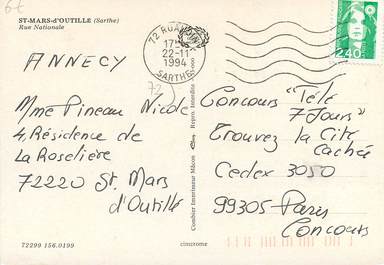 6€
ST-MARS-d'OUTILLE (Sarthe)
Rue Nationale
72 RUAUDIN
22-11
1994
SARTHE
2,40
ANNECY
72
Mme Pineau Nicole
4, Résidence de
La Roselière
72220 St. Mars
d'Outillé
Combier Imprimeur Mâcon
Repro. Interdite
Concours "Télé
7 Jours"
Trouvez la Cité
cachée
Cedex 3050
99305 Paris
Concours
72299 156.0199
cimcrome